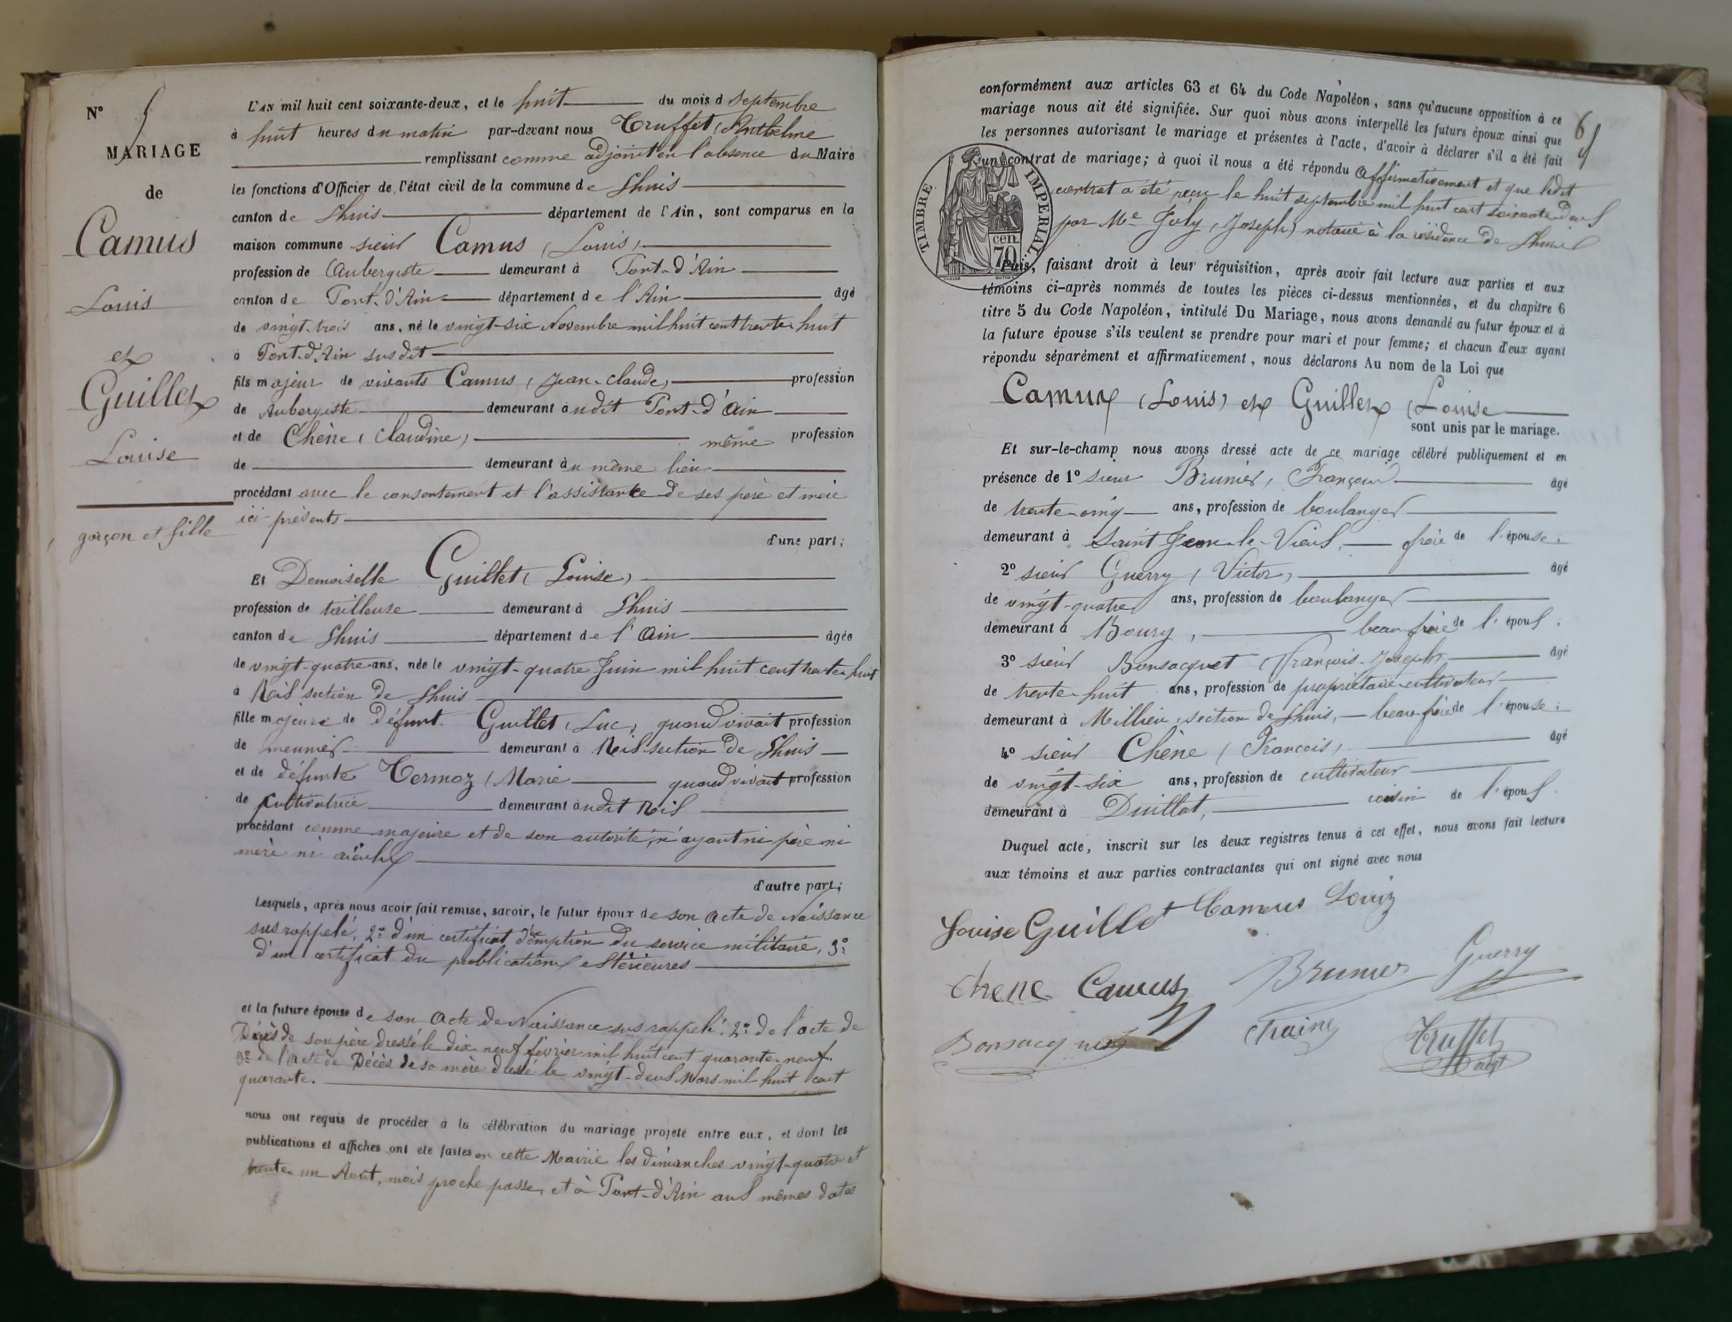 N° 5
MARIAGE
de
Camus
Louis
et
Guillet
Louise
garçon et fille
L'AN mil huit cent soixante-deux, et le huit du mois d septembre
à huit heures du matin par-devant nous Truffet (Anthelme
remplissant comme adjoint en l'absence du Maire
les fonctions d'Officier de l'état civil de la commune de Lhuis
canton de Lhuis département de l'Ain, sont comparus en la
maison commune sieur Camus (Louis)
profession de Aubergiste demeurant à Pont-d'Ain
canton de Pont-d'Ain département de l'Ain âgé
de vingt-trois ans, né le vingt-six Novembre mil huit cent trente huit
à Pont-d'Ain susdit
fils majeur de vivants Camus (Jean-Claude) profession
de Aubergiste demeurant audit Pont-d'Ain
et de Chêne (Claudine) même profession
de demeurant au même lieu
procédant avec le consentement et l'assistance de ses père et mère
ici présents
d'une part;
Et Demoiselle Guillet (Louise)
profession de tailleuse demeurant à Lhuis
canton de Lhuis département de l'Ain âgée
de vingt-quatre ans, née le vingt-quatre Juin mil huit cent trente huit
à section de Lhuis
fille majeure de défunt Guillet (Luc) quand vivait profession
de meunier demeurant à section de Lhuis
et de défunte Termoz (Marie quand vivait profession
de cultivatrice demeurant audit
procédant comme majeure et de son autorité, n'ayant ni père ni
mère ni aïeuls
d'autre part;
Lesquels, après nous avoir fait remise, savoir, le futur époux de son acte de Naissance
sus rappelé, 2° d'un certificat d'exemption du service militaire, 3°
d'un certificat du publications extérieures
et la future épouse de son acte de Naissance sus rappelé: 2° de l'acte de
Décès de son père dressé le dix neuf février mil huit cent quarante neuf.
3° de l'acte de Décès de sa mère dressé le vingt-deux Mars mil huit cent
quarante.
nous ont requis de procéder à la célébration du mariage projeté entre eux, et dont les
publications et affiches ont été faites en cette Mairie les dimanches vingt-quatre et
trente un Août, mois proche passé, et à Pont-d'Ain aux mêmes dates
conformément aux articles 63 et 64 du Code Napoléon, sans qu'aucune opposition à ce
mariage nous ait été signifiée. Sur quoi nous avons interpellé les futurs époux ainsi que
les personnes autorisant le mariage et présentes à l'acte, d'avoir à déclarer s'il a été fait
un contrat de mariage; à quoi il nous a été répondu affirmativement et que ledit
contrat a été reçu le huit septembre mil huit cent soixante deux
par Me Joly (Joseph) notaire à la résidence de Lhuis
TIMBRE IMPERIAL
70 cen.
Puis, faisant droit à leur réquisition, après avoir fait lecture aux parties et aux
témoins ci-après nommés de toutes les pièces ci-dessus mentionnées, et du chapitre 6
titre 5 du Code Napoléon, intitulé Du Mariage, nous avons demandé au futur époux et à
la future épouse s'ils veulent se prendre pour mari et pour femme; et chacun d'eux ayant
répondu séparément et affirmativement, nous déclarons Au nom de la Loi que
Camus (Louis) et Guillet (Louise
sont unis par le mariage.
Et sur-le-champ nous avons dressé acte de ce mariage célébré publiquement et en
présence de 1° sieur Brunier, François âgé
de trente-cinq ans, profession de boulanger
demeurant à Saint Jean-le-Vieux, frère de l'épouse.
2° sieur Guerry (Victor) âgé
de vingt-quatre ans, profession de boulanger
demeurant à Bourg, beau frère de l'époux.
3° sieur Bonsacquet (François-Joseph) âgé
de trente-huit ans, profession de propriétaire-cultivateur
demeurant à Millieu, section de Lhuis, beau frère de l'épouse.
4° sieur Chêne (François) âgé
de vingt-six ans, profession de cultivateur
demeurant à Druillat, cousin de l'époux.
Duquel acte, inscrit sur les deux registres tenus à cet effet, nous avons fait lecture
aux témoins et aux parties contractantes qui ont signé avec nous
Louise Guillet Camus Louis
chene Camus Brunier Guerry
Bonsacquet Truffet
adjt